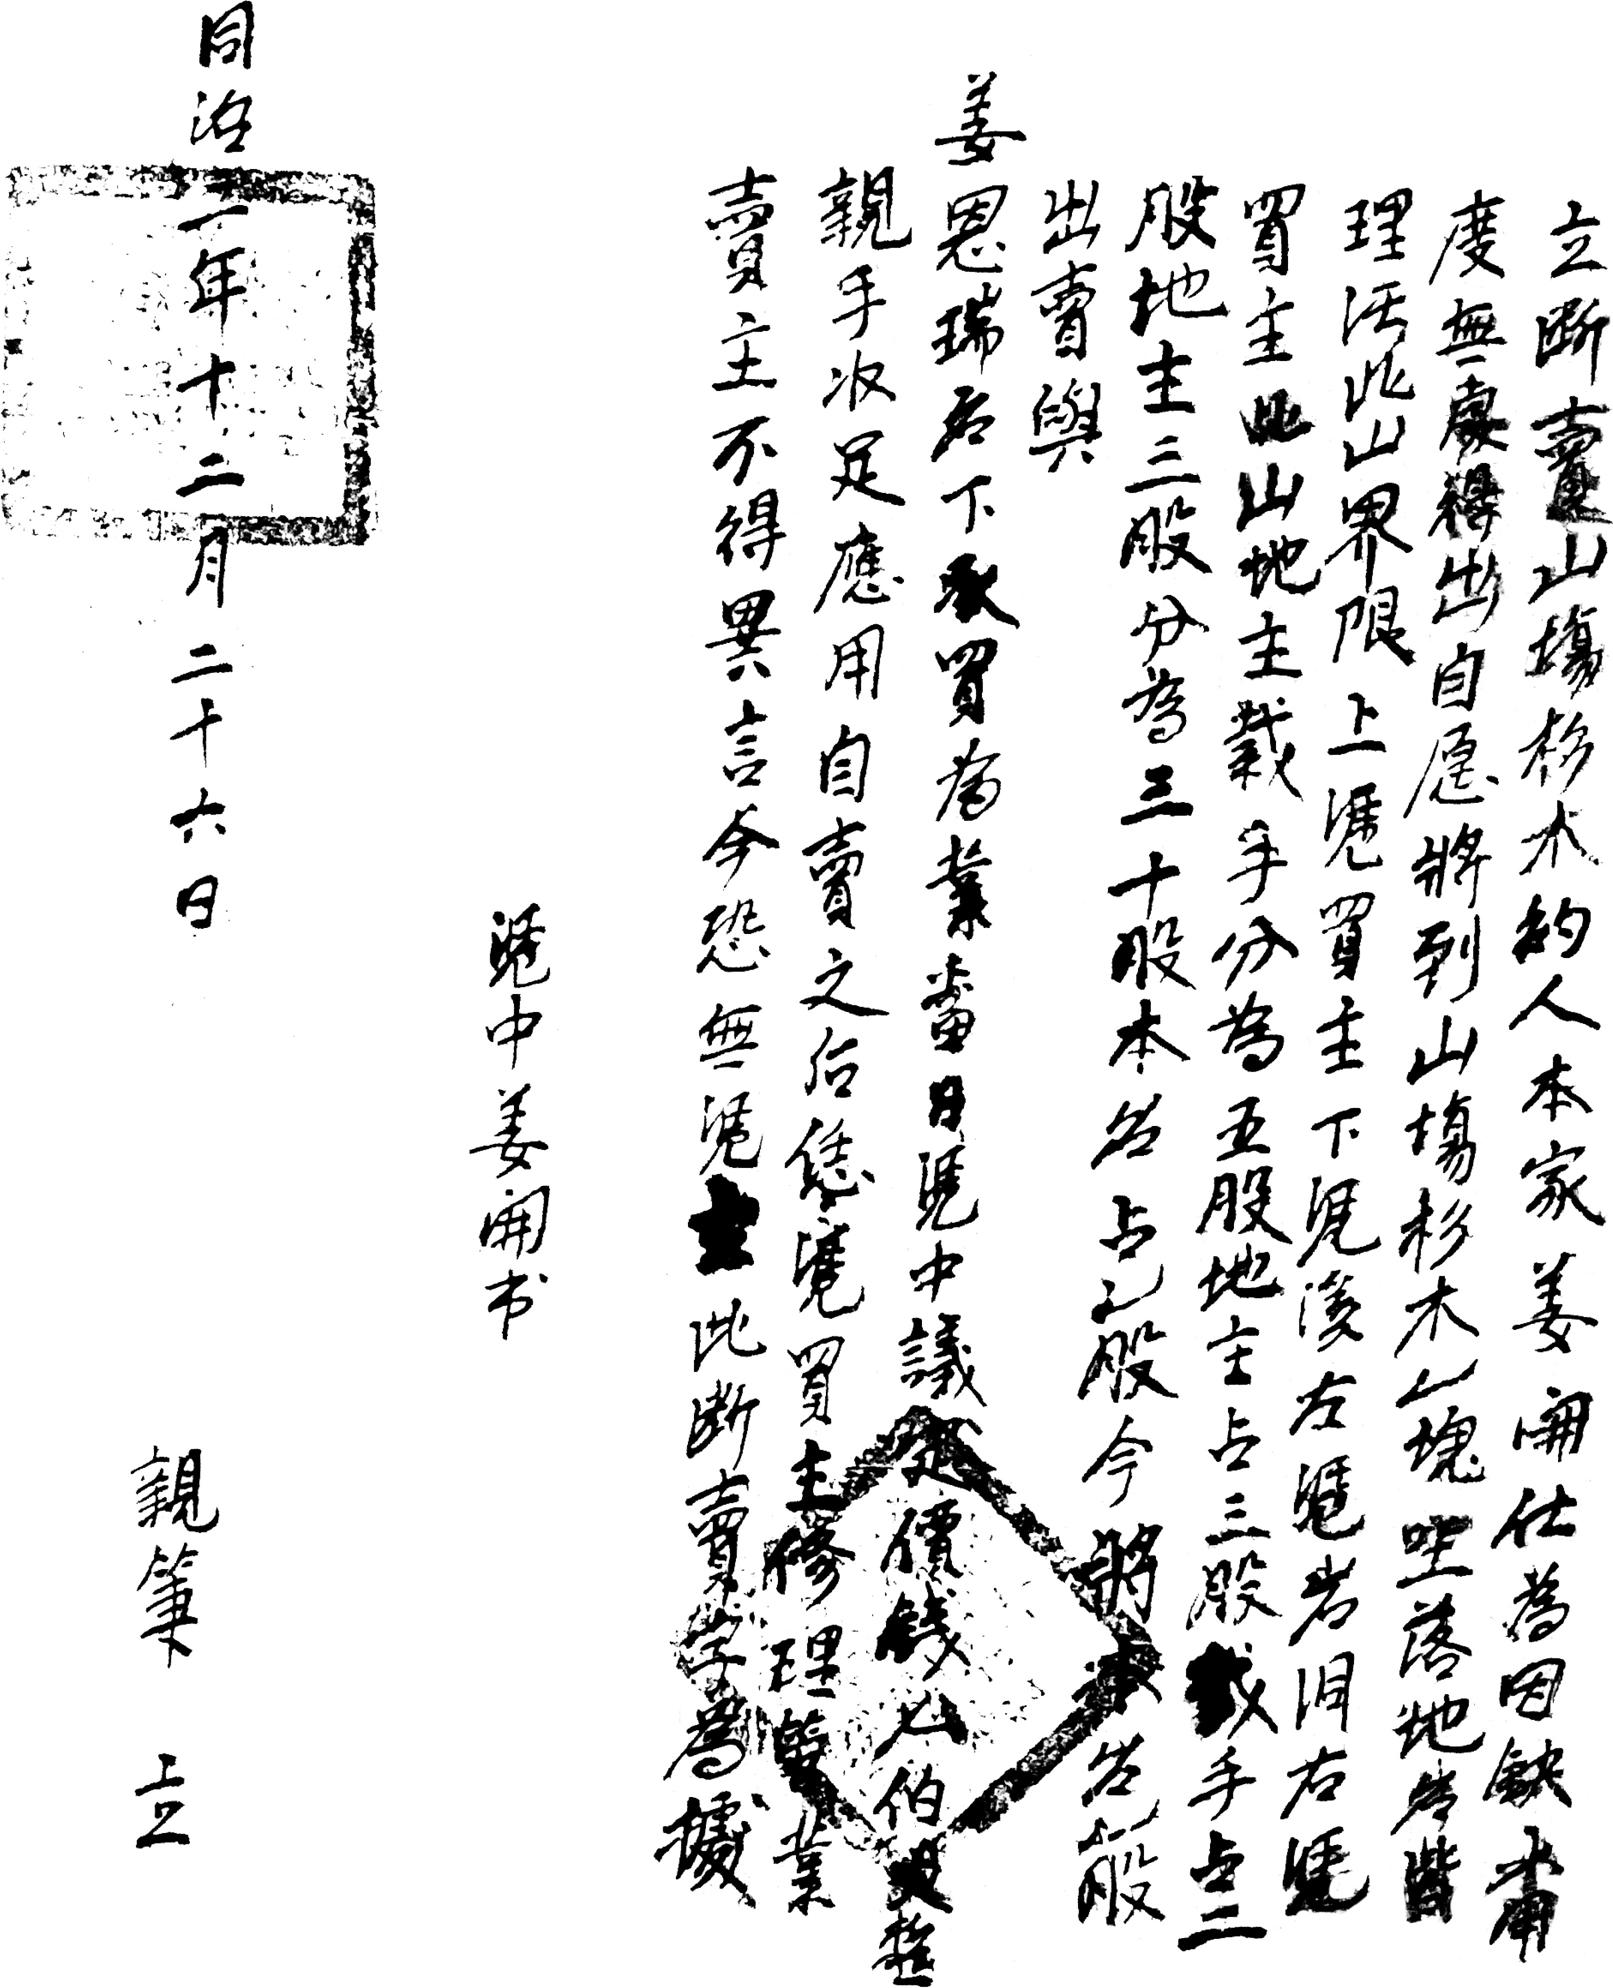 立断賣山塲杉木約人本家姜開仕為因缺少用
度無處得出自愿將到山塲杉木乙塊坐落地名皆
理汚此山界限上凴買主下凴溪左凴岩洞右凴
買主此山地主栽手分為五股地主占三股栽手占二
股地主三股分為三十股本名占乙股今將本名乙股
出賣與
姜恩瑞名下承買為業當日凴中議定價錢乙伯文整
親手收足應用自賣之后恁凴買主修理管業
賣主不得異言今恐無凴立此断賣字為據
凴中姜開书
同治二年十二月二十六日 親筆 立